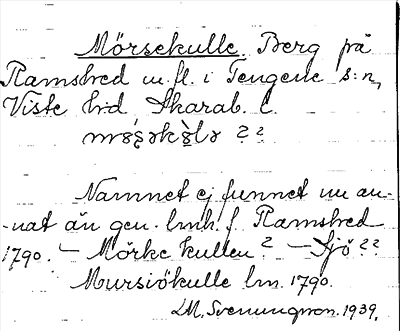 Mörsekulle. Berg på
Ramstved m. fl. i Tengene s:n,
Viste hd. Skarab. l.
??
Namnet ej funnet nu an-
-nat än gen. lmh. f. Ramstved
1790. – Mörke kullen? – Sjö??
Mursiökulle lm. 1790.
LM. Svenungsson. 1939.